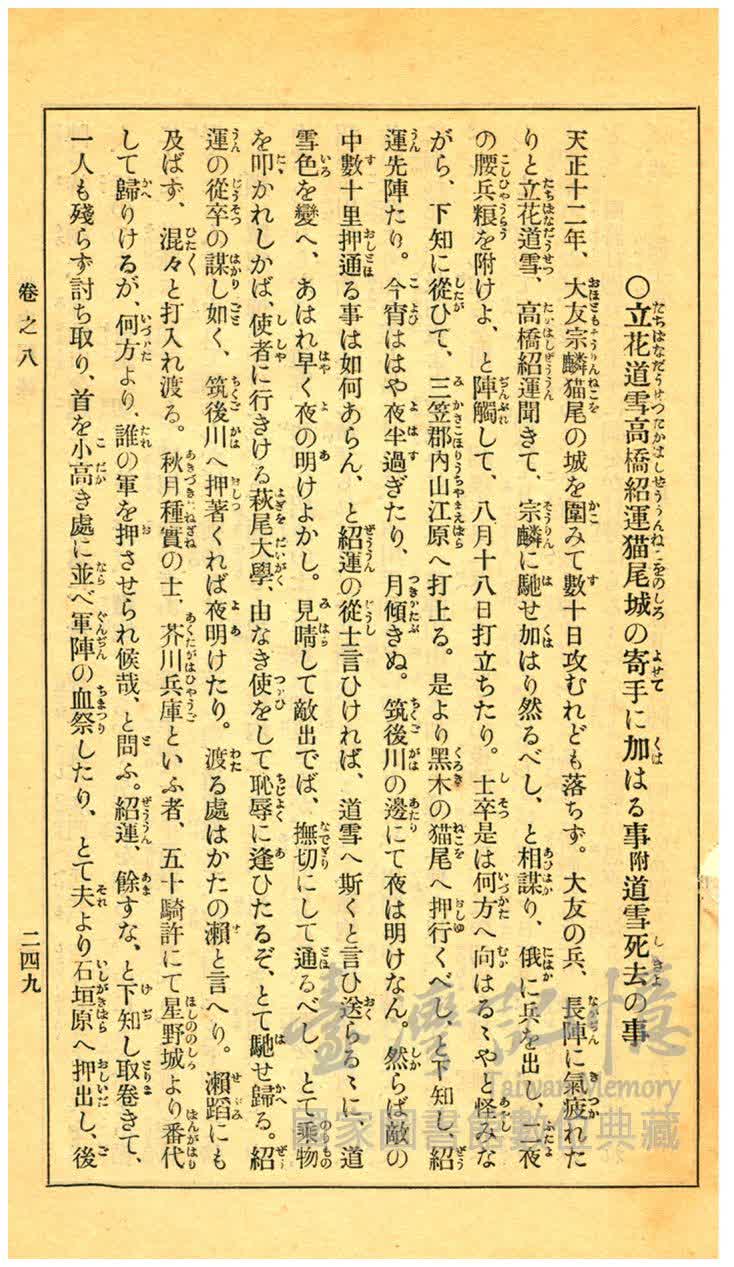 〇立花道雪高橋紹運猫尾城の寄手に加はる事附道雪死去の事
天正十二年、大友宗麟猫尾の城を圍みて數十日攻むれども落ちず。大友の兵、長陣に氣疲れた
りと立花道雪、高橋紹運聞きて、宗麟に馳せ加はり然るべし、と相謀り、俄に兵を出し、二夜
の腰兵粮を附けよ、と陣觸して、八月十八日打立ちたり。士卒是は何方へ向はるゝやと怪みな
がら、下知に從ひて、三笠郡內山江原へ打上る。是より黑木の猫尾へ押行くべし、と下知し、紹
運先陣たり。今宵ははや夜半過ぎたり、月傾きぬ。筑後川の邊にて夜は明けなん。然らば敵の
中數十里押通る事は如何あらん、と紹運の從士言ひければ、道雪へ斯くと言ひ送らるゝに、道
雪色を變へ、あはれ早く夜の明けよかし。見晴して敵出でば、撫切にして通るべし、とて乘物
を叩かれしかば、使者に行きける萩尾大學、由なき使をして恥辱に逢ひたるぞ、とて馳せ歸る。紹
運の從卒の謀し如く、筑後川へ押著くれば夜明けたり。渡る處はかたの瀨と言へり。瀨蹈にも
及ばず、混々と打入れ渡る。秋月種實の士、芥川兵庫といふ者、五十騎許にて星野城より番代
して歸りけるが、何方より、誰の軍を押させられ候哉、と問ふ。紹運、餘すな、と下知し取卷きて、
一人も殘らず討ち取り、首を小高き處に並べ軍陣の血祭したり、とて夫より石垣原へ押出し、後
卷之八
二四九
臺灣記憶
Taiwan Memory
國家圖書館數位典藏